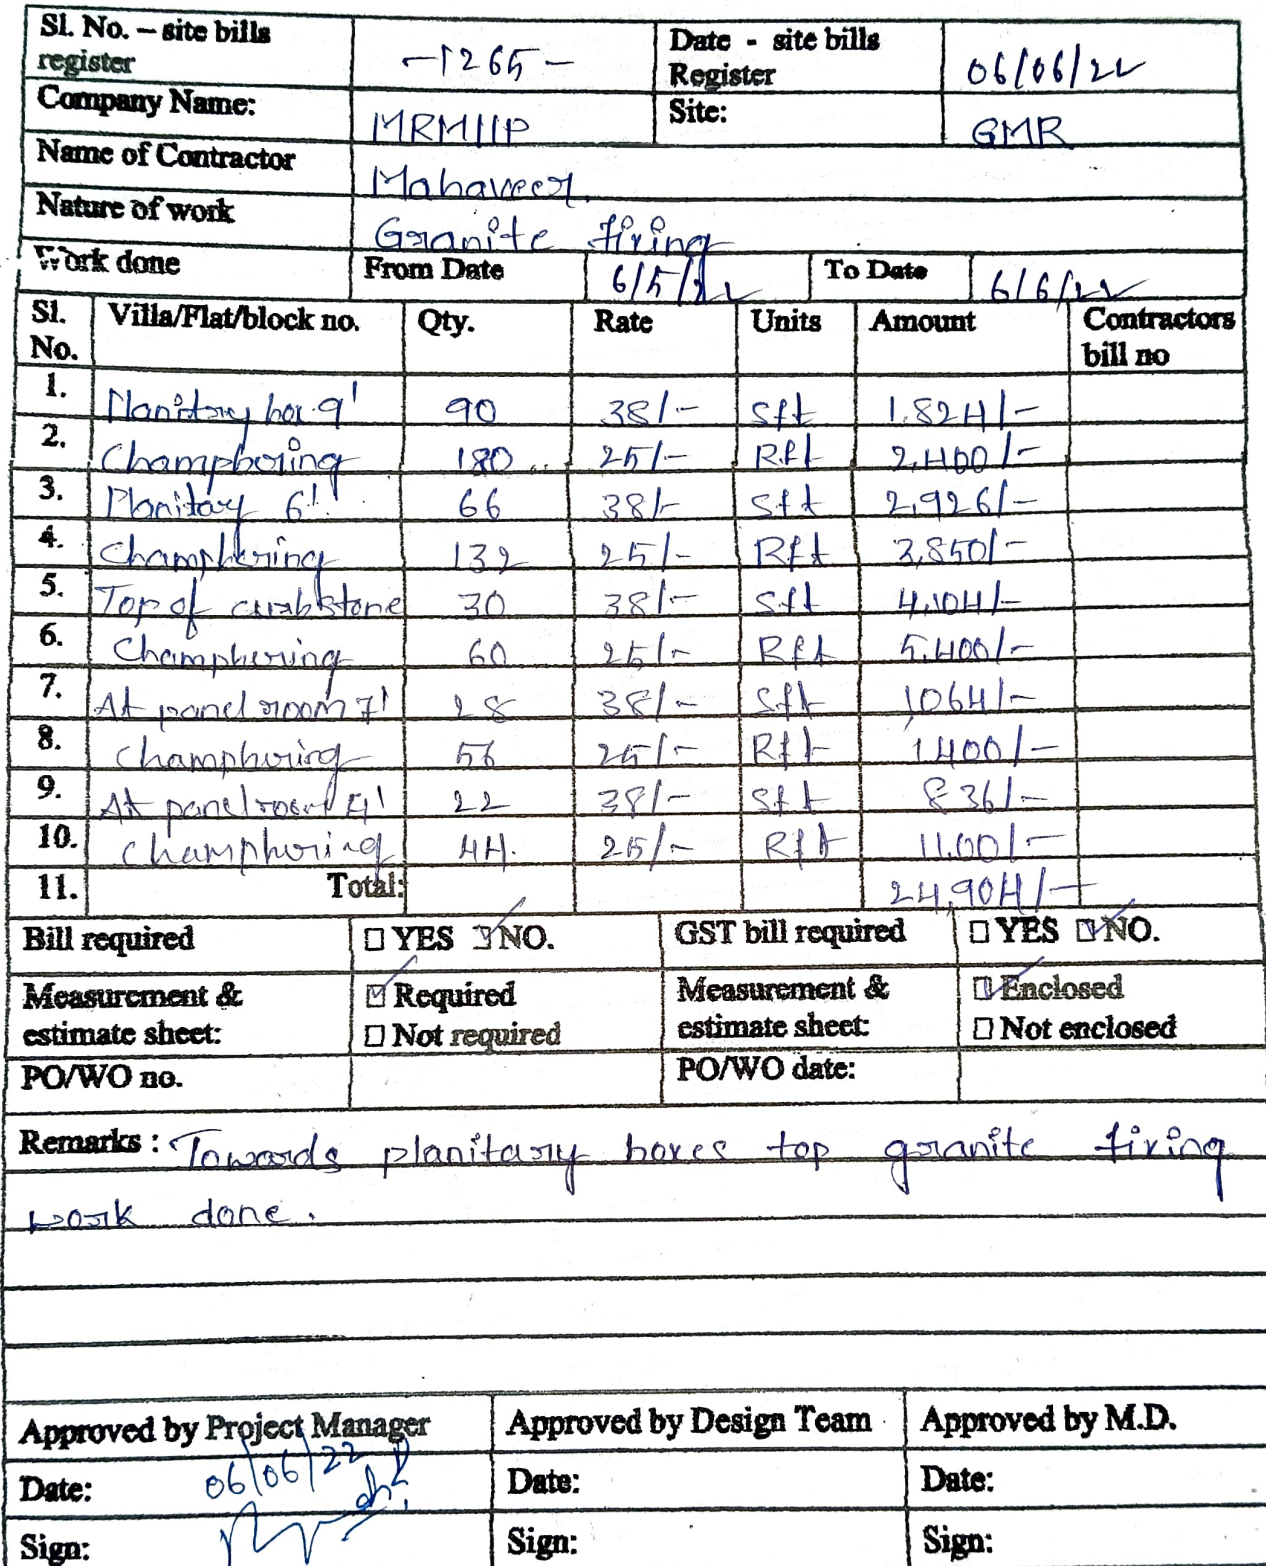 Sl. No. – site bills register -1265- Date - site bills Register 06/06/22
Company Name: MRMIIP Site: GMR
Name of Contractor Mahaveer.
Nature of work Granite fixing
Work done From Date 6/5/22 To Date 6/6/22
Sl. No. Villa/Flat/block no. Qty. Rate Units Amount Contractors bill no
1. Planitary box 9' 90 38/- Sft 1,824/-
2. Champhering 180 25/- Rft 2,400/-
3. Planitary 6' 66 38/- Sft 2,926/-
4. Champhering 132 25/- Rft 3,850/-
5. Top of curbstone 30 38/- Sft 4,104/-
6. Champhering 60 25/- Rft 5,400/-
7. At panel room 7' 28 38/- Sft 1064/-
8. Champhering 56 25/- Rft 1,400/-
9. At panel room 4' 22 38/- Sft 836/-
10. Champhering 44. 25/- Rft 1100/-
11. Total: 24,904/-
Bill required □ YES □ NO. GST bill required □ YES □ NO.
Measurement & estimate sheet: ☑ Required □ Not required Measurement & estimate sheet: □ Enclosed □ Not enclosed
PO/WO no. PO/WO date:
Remarks : Towards planitary boxes top granite fixing
work done.
Approved by Project Manager Approved by Design Team Approved by M.D.
Date: 06/06/22 Date: Date:
Sign: Sign: Sign: